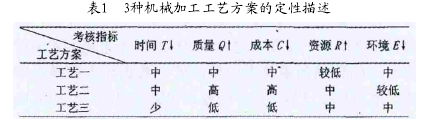 表1 3种机械加工工艺方案的定性描述
考核指标
工艺方案 时间 T↓ 质量 Q↑ 成本 C↓ 资源 R↑ 环境 E↓
工艺一 中 中 中 较低 中
工艺二 中 高 高 中 较低
工艺三 少 低 低 中 中